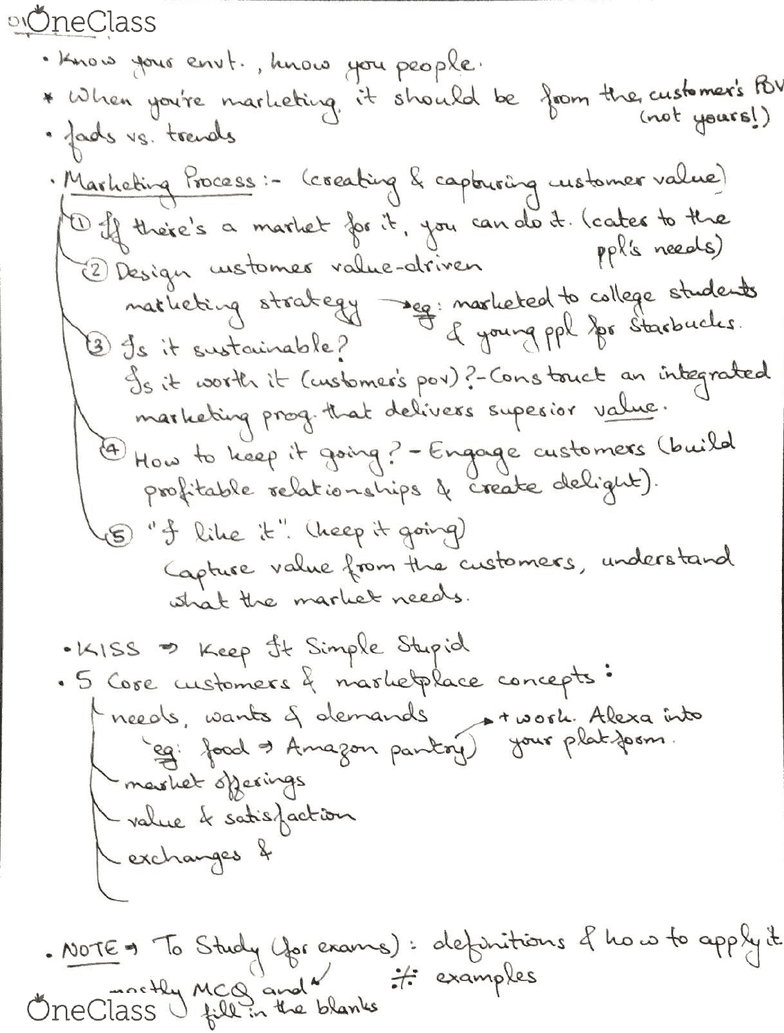 OneClass
• Know your envt., know you people.
* When you're marketing, it should be from the customer's POV
(not yours!)
• fads vs. trends
• Marketing Process :- (creating & capturing customer value)
① If there's a market for it, you can do it. (cates to the
ppl's needs)
② Design customer value-driven
marketing strategy → eg: marketed to college students
& young ppl for Starbucks.
③ Is it sustainable?
Is it worth it (customer's pov)? - Construct an integrated
marketing prog. that delivers superior value.
④ How to keep it going? - Engage customers (build
profitable relationships & create delight).
⑤ "I like it". (keep it going)
Capture value from the customers, understand
what the market needs.
• KISS ⇒ Keep It Simple Stupid
• 5 Core customers & marketplace concepts :
needs, wants & demands → + work. Alexa into
(eg: food → Amazon pantry) your platform.
market offerings
value & satisfaction
exchanges &
• NOTE → To Study (for exams) : definitions & how to apply it
mostly MCQ and examples
OneClass fill in the blanks